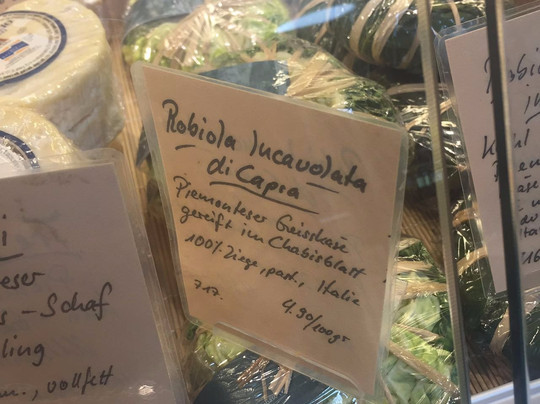 Robiola Incavolata
di Capra
Piemonteser Geisskäse
gereift im Chabisblatt
100% Ziege, past., Italie
4.90/100gr
i
eser
s - Schaf
ling
m., vollfett
Robio